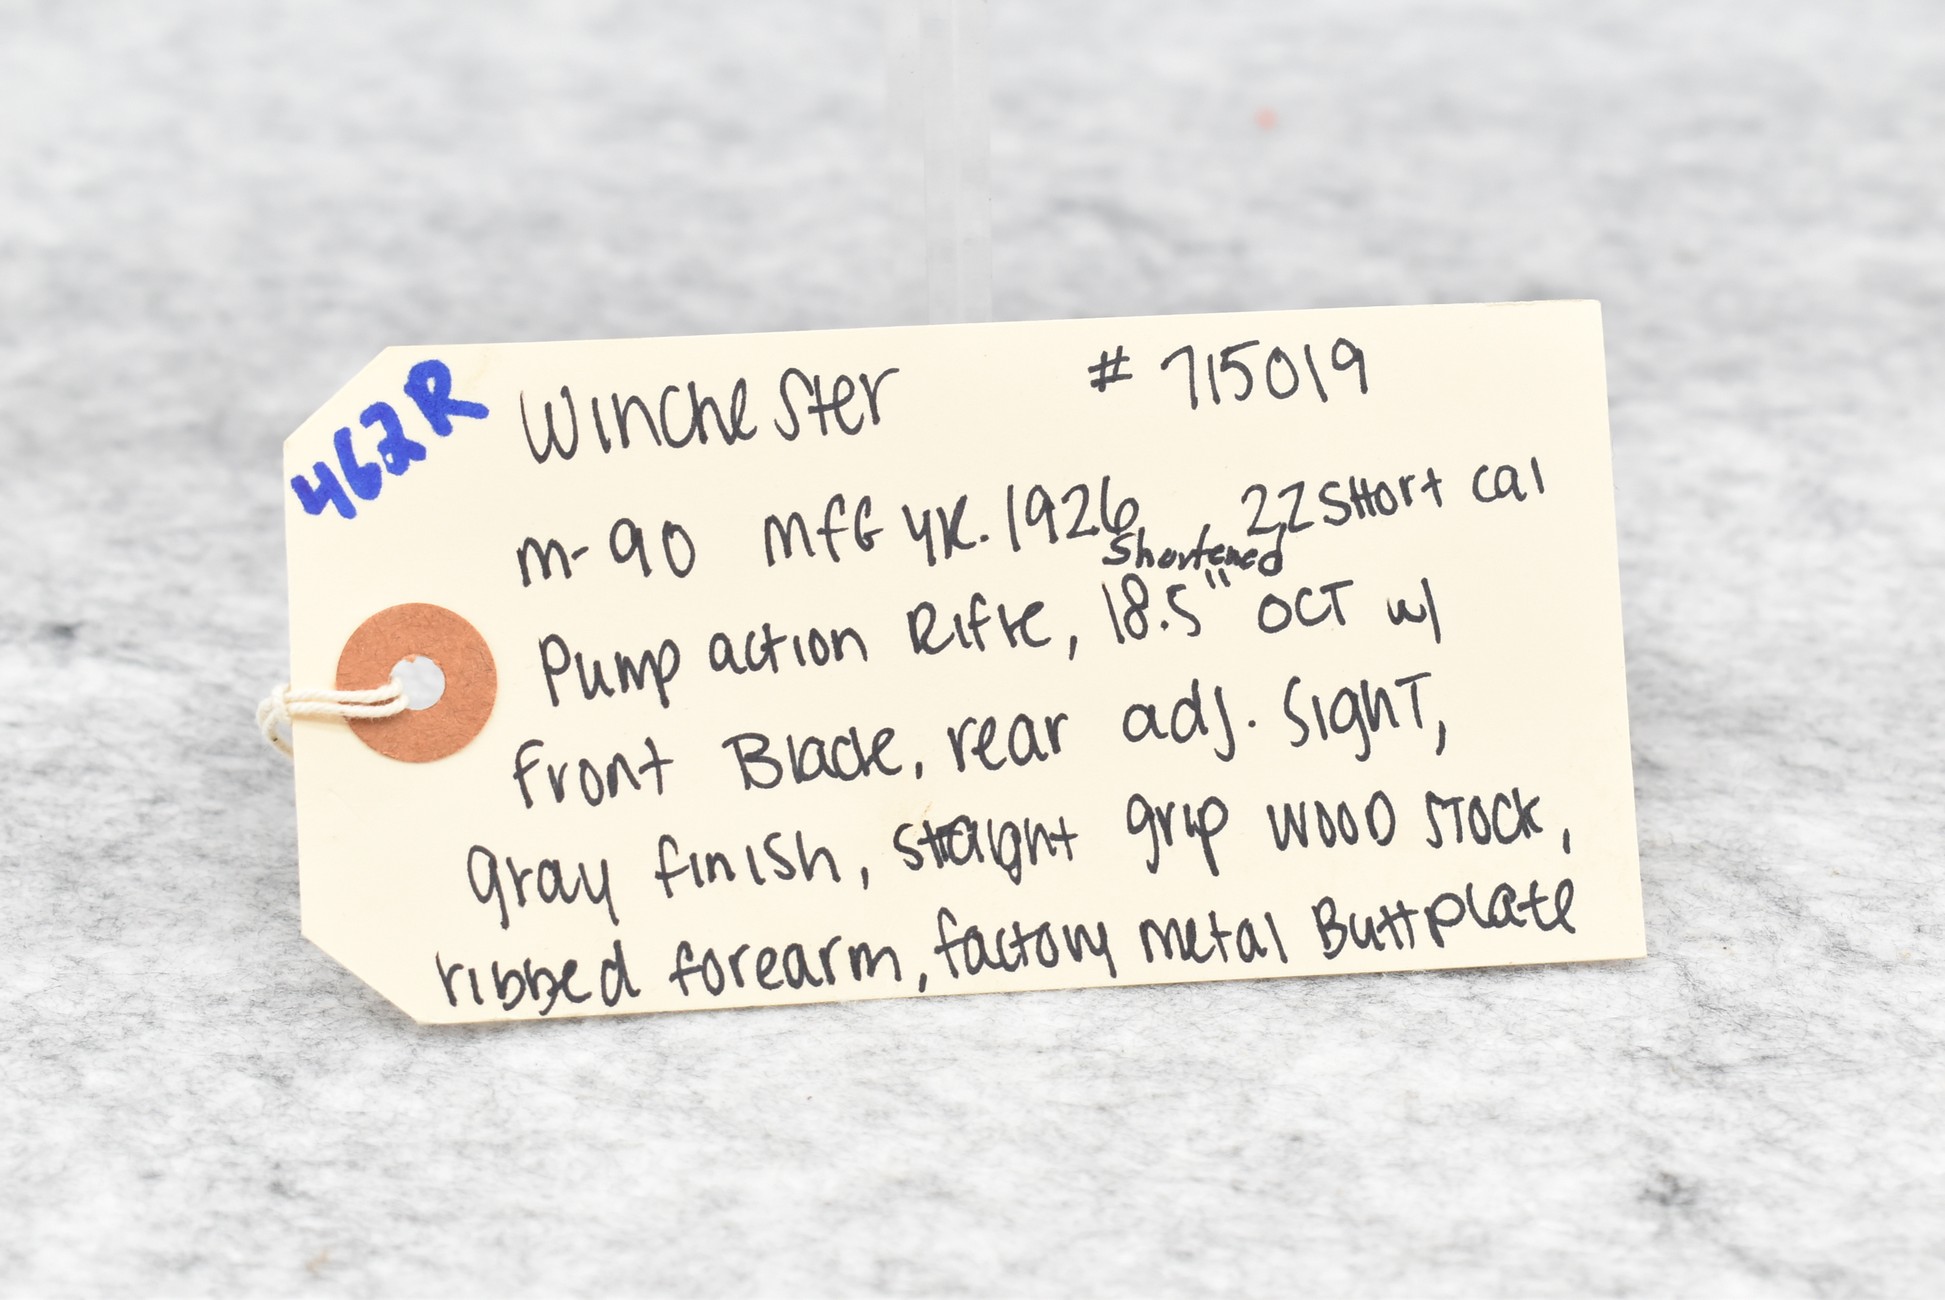 462R
Winchester # 715019
M-90 MFG YR. 1926 22 SHort cal
Shortened
Pump action Rifle, 18.5" OCT w/
front Blade, rear adj. Sight,
gray finish, straight grip WOOD STOCK,
ribbed forearm, factory metal Buttplate